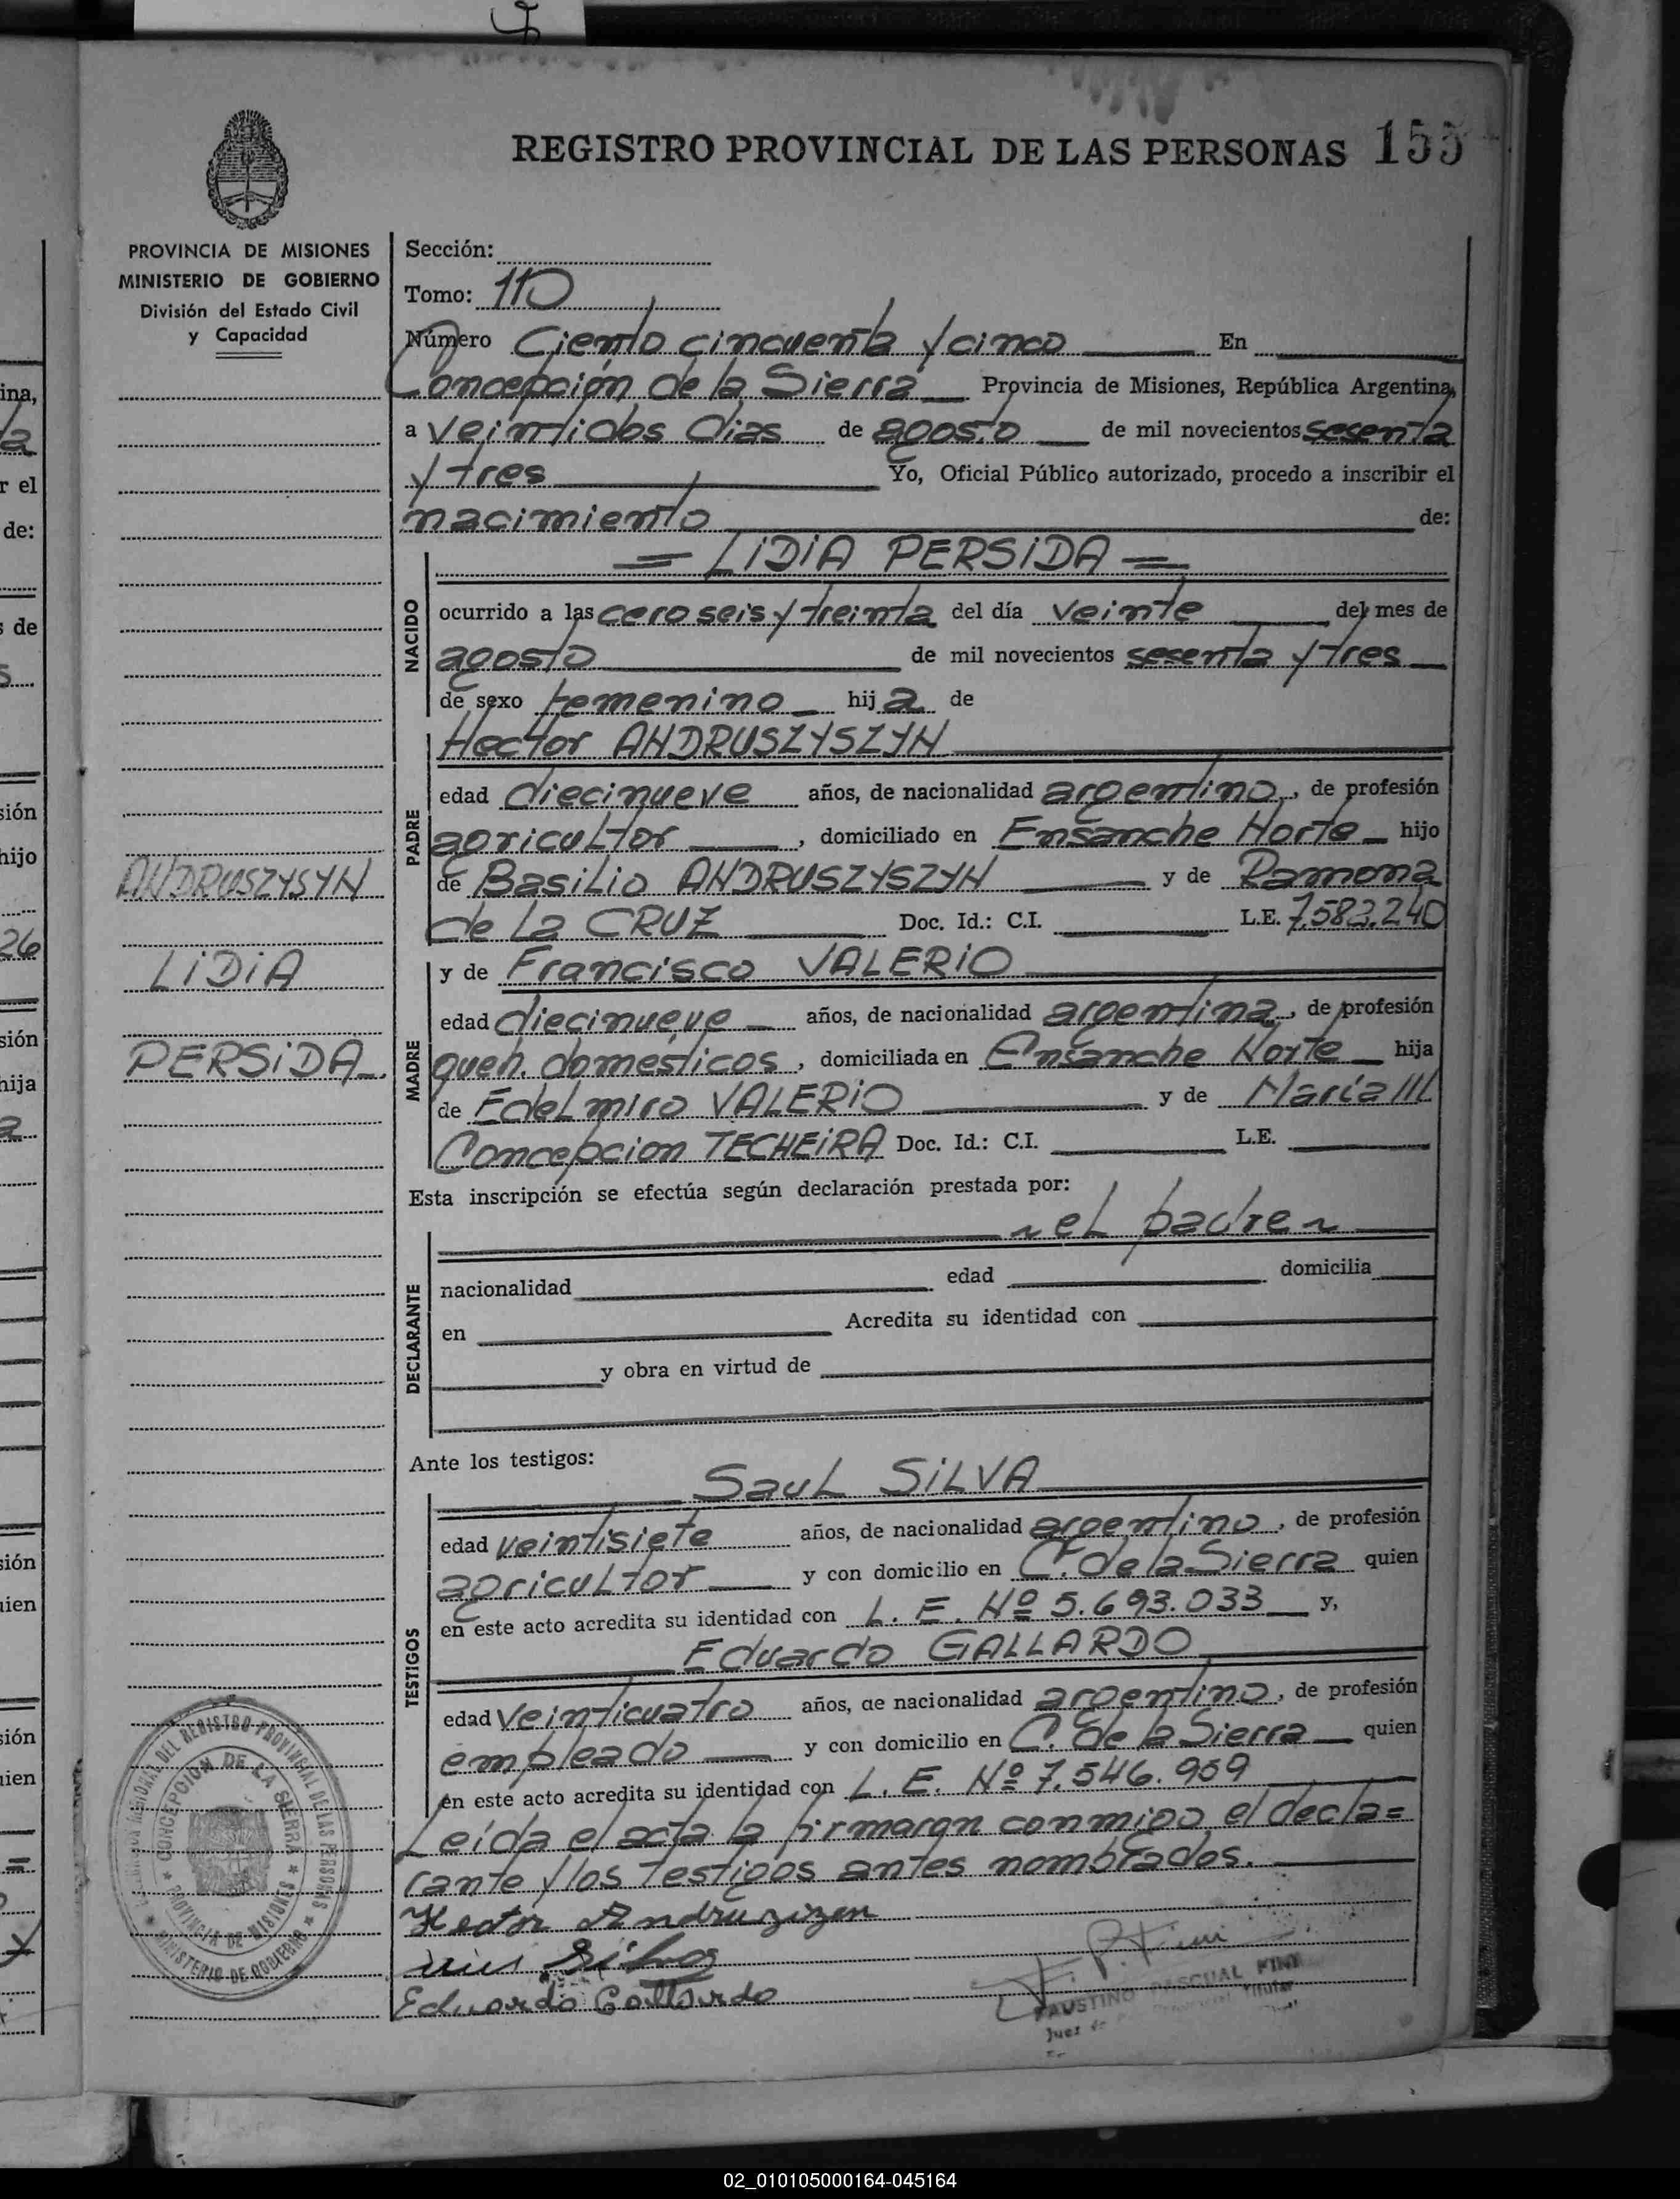 REGISTRO PROVINCIAL DE LAS PERSONAS 155
PROVINCIA DE MISIONES
MINISTERIO DE GOBIERNO
División del Estado Civil
y Capacidad
ANDRUSZYSYN
LIDIA
PERSIDA
Sección:
Tomo: 110
Número Ciento cincuenta y cinco En
Concepción de la Sierra Provincia de Misiones, República Argentina,
a veintidos dias de agosto de mil novecientos sesenta
y tres Yo, Oficial Público autorizado, procedo a inscribir el
nacimiento de:
= LIDIA PERSIDA =
NACIDO
ocurrido a las cero seis y treinta del día veinte del mes de
agosto de mil novecientos sesenta y tres
de sexo femenino hija de
Hector ANDRUSZYSZYN
PADRE
edad diecinueve años, de nacionalidad argentino, de profesión
agricultor, domiciliado en Ensanche Norte hijo
de Basilio ANDRUSZYSZYN y de Ramona
de la CRUZ Doc. Id.: C.I. L.E. 7.582.240
y de Francisco VALERIO
MADRE
edad diecinueve años, de nacionalidad argentina, de profesión
queh. domesticos, domiciliada en Ensanche Norte hija
de Edelmiro VALERIO y de María
Concepcion TECHEIRA Doc. Id.: C.I. L.E.
Esta inscripción se efectúa según declaración prestada por:
~ el padre ~
DECLARANTE
nacionalidad edad domicilia
en Acredita su identidad con
y obra en virtud de
Ante los testigos:
Saul SILVA
TESTIGOS
edad veintisiete años, de nacionalidad argentino, de profesión
agricultor y con domicilio en C. de la Sierra quien
en este acto acredita su identidad con L. E. Nº 5.693.033 y,
Eduardo GALLARDO
edad veinticuatro años, de nacionalidad argentino, de profesión
empleado y con domicilio en C. de la Sierra quien
en este acto acredita su identidad con L. E. Nº 7.546.959
Leída el acta la firmaran conmigo el decla=
rante y los testigos antes nombrados.
Hector Andruzizen
Silva
Eduardo Gallardo
FAUSTINO PASCUAL FINI
Juez de
Titular
DEL REGISTRO PROVINCIAL DE LAS PERSONAS
MINISTERIO DE GOBIERNO
CONCEPCION DE LA SIERRA
PROVINCIA DE MISIONES
ina,
r el
de:
s de
sión
hijo
26
sión
hija
sión
uien
sión
uien
02_010105000164-045164